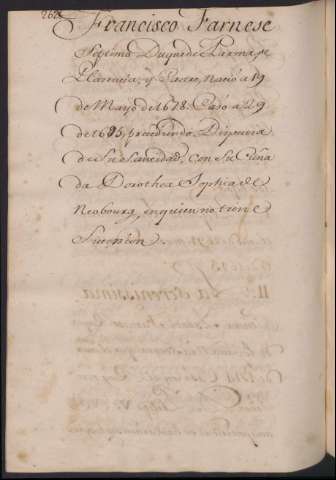 Francisco Farnese
Septimo Duque de Parma, y
Plasencia, y Castro, nacio a 19
de Mayo de 1678. Casó a
de 1695, precediendo Dispensa
de Su Santidad, con Su Cuña
da Dorothea Sophia de
Neobourg, en quien no tiene
Sucesion.